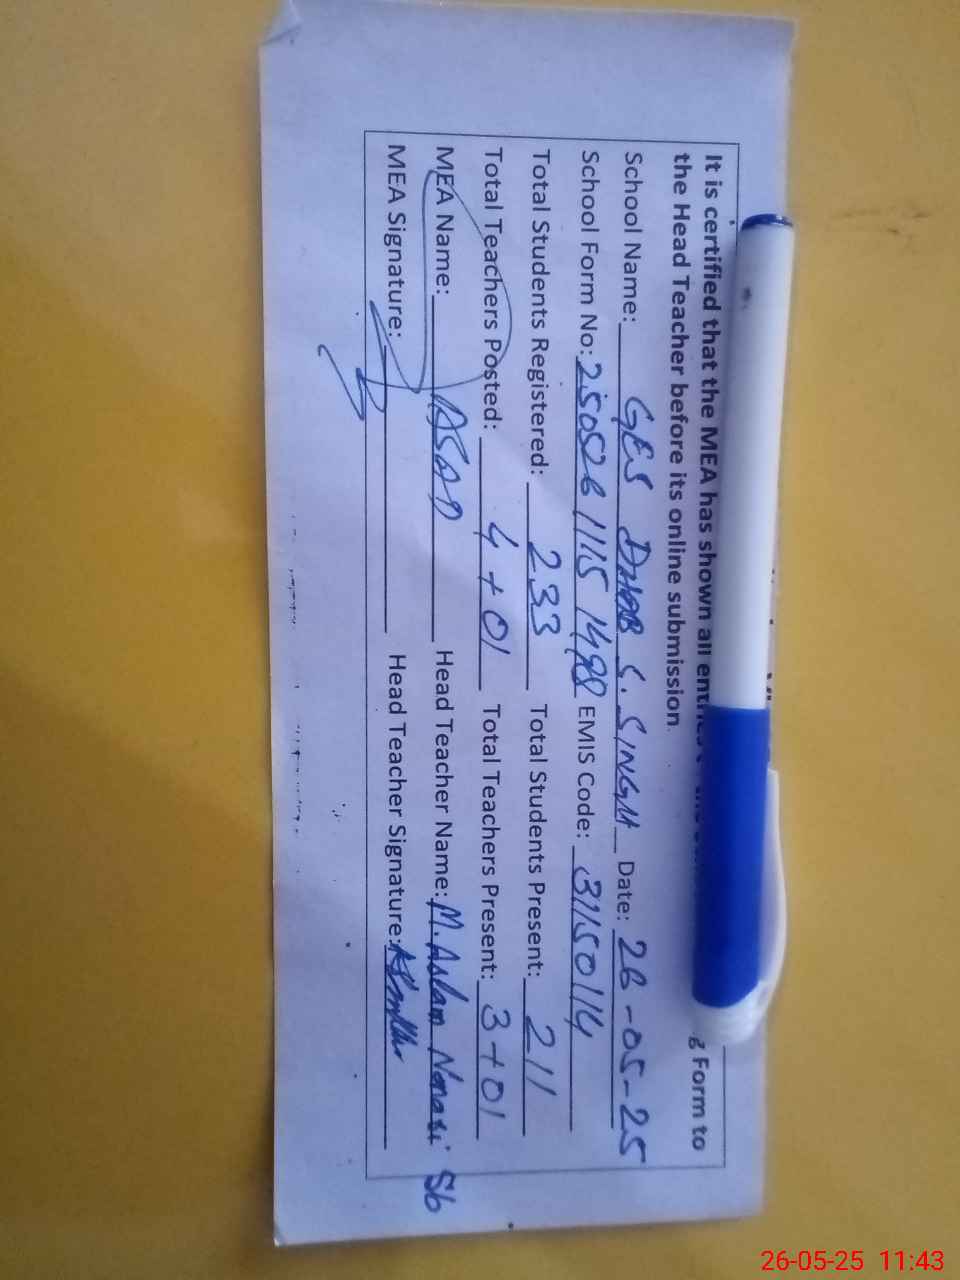 It is certified that the MEA has shown all g Form to
the Head Teacher before its online submission.
School Name: GES S. SINGH Date: 26-05-25
School Form No: 25052611151488 EMIS Code: 31150114
Total Students Registered: 233 Total Students Present: 211
Total Teachers Posted: 4+01 Total Teachers Present: 3+01
MEA Name: ASAD Head Teacher Name: M. Aslam Sb
MEA Signature: Head Teacher Signature:
26-05-25 11:43